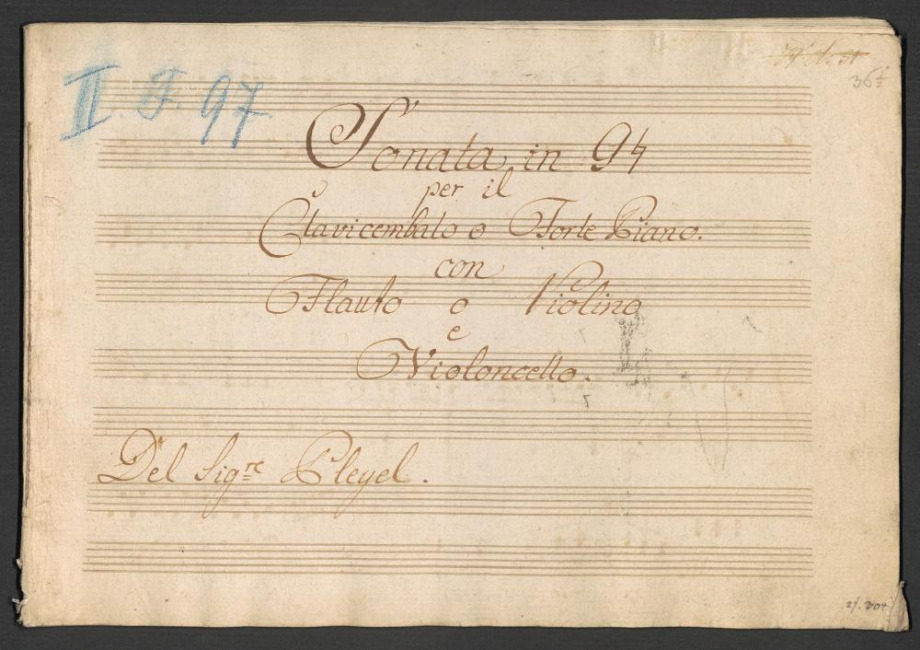 II. F. 97
367
Sonata in G♮
per il
Clavicembalo o Forte Piano.
con
Flauto o Violino
e
Violoncello.
Del Sigre Pleyel.